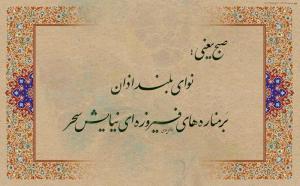 صبح یعنی؛
نوای بلند اذان
بر مناره های فیروزه ای نیایش سحر